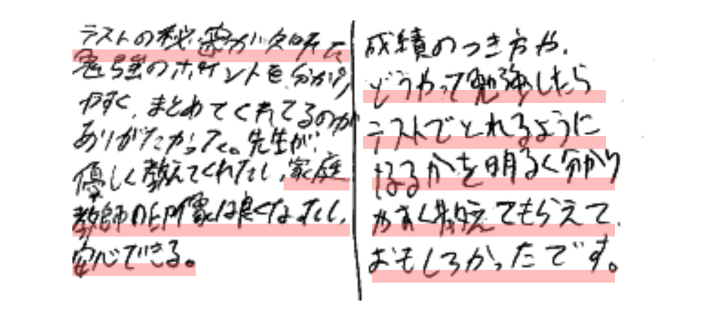 テストの秘密が知れた
勉強のポイントを分かり
やすく、まとめてくれてるのが
ありがたかった。先生が、
優しく教えてくれたし、家庭
教師の印象は良くなったし、
安心できる。
成績のつき方や、
どうやって勉強したら
テストでとれるように
なるかを明るく分かり
やすく教えてもらえて、
おもしろかったです。